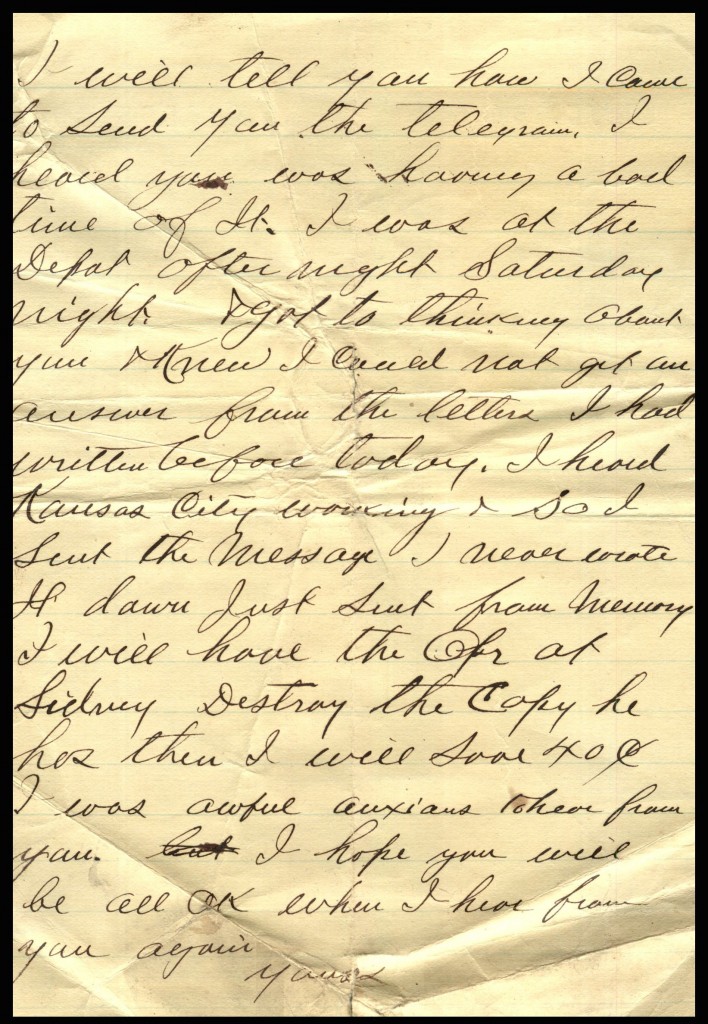 I will tell you how I Came
to Send you the telegram, I
heard you was having a bad
time of It. I was at the
Depot after night Saturday
night. & got to thinking about
you & Knew I Could not get an
answer from the letters I had
written before today. I heard
Kansas City working & so I
Sent the Message I never wrote
It down Just Sent from Memory
I will have the Opr at
Sidney Destroy the Copy he
has then I will Save 40¢
I was awful anxious to hear from
you. but I hope you will
be all OK when I hear from
you again
yours